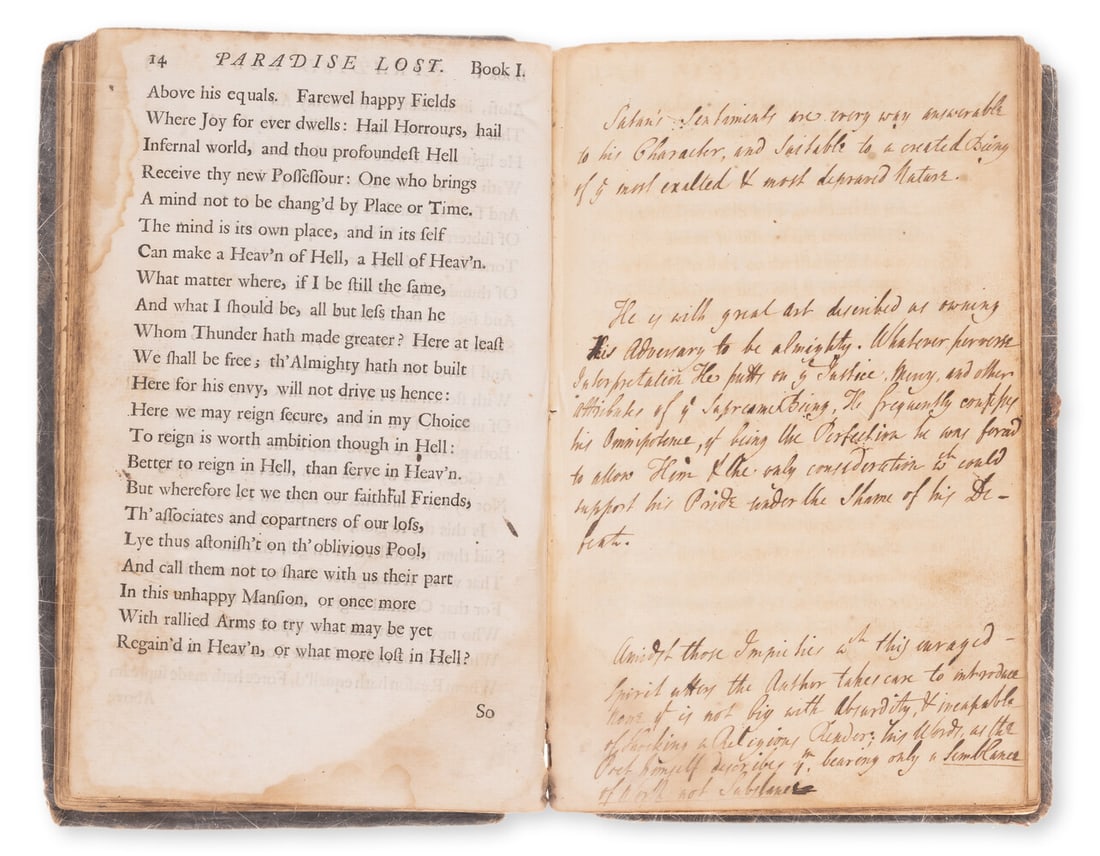 14 PARADISE LOST. Book I.
Above his equals. Farewel happy Fields
Where Joy for ever dwells: Hail Horrours, hail
Infernal world, and thou profoundeſt Hell
Receive thy new Poſſeſſour: One who brings
A mind not to be chang'd by Place or Time.
The mind is its own place, and in its ſelf
Can make a Heav'n of Hell, a Hell of Heav'n.
What matter where, if I be ſtill the ſame,
And what I ſhould be, all but leſs than he
Whom Thunder hath made greater? Here at leaſt
We ſhall be free; th'Almighty hath not built
Here for his envy, will not drive us hence:
Here we may reign ſecure, and in my Choice
To reign is worth ambition though in Hell:
Better to reign in Hell, than ſerve in Heav'n.
But wherefore let we then our faithful Friends,
Th'aſſociates and copartners of our loſs,
Lye thus aſtoniſh't on th'oblivious Pool,
And call them not to ſhare with us their part
In this unhappy Manſion, or once more
With rallied Arms to try what may be yet
Regain'd in Heav'n, or what more loſt in Hell?
So
Satan's Sentiments are every way answerable
to his Character, and Suitable to a created Being
of yͤ most exalted & most depraved Nature.
He is with great Art described as owning
his Adversary to be almighty. Whatever perverse
Interpretation He putts on yͤ Justice, Mercy, and other
Attributes of yͤ Supreame Being, He frequently confesses
his Omnipotence, yͭ being the Perfection he was forced
to allow Him & the only consideration wͨͪ could
support his Pride under the Shame of his De-
feate.
Amidst those Impieties wͨͪ this enraged
Spirit utters the Author takes care to introduce
None yͭ is not big with Absurdity, & incapable
of shocking a Religious Reader; his Words, as the
Poet himself describes yͫ, bearing only a Semblance
of Worth not Substance